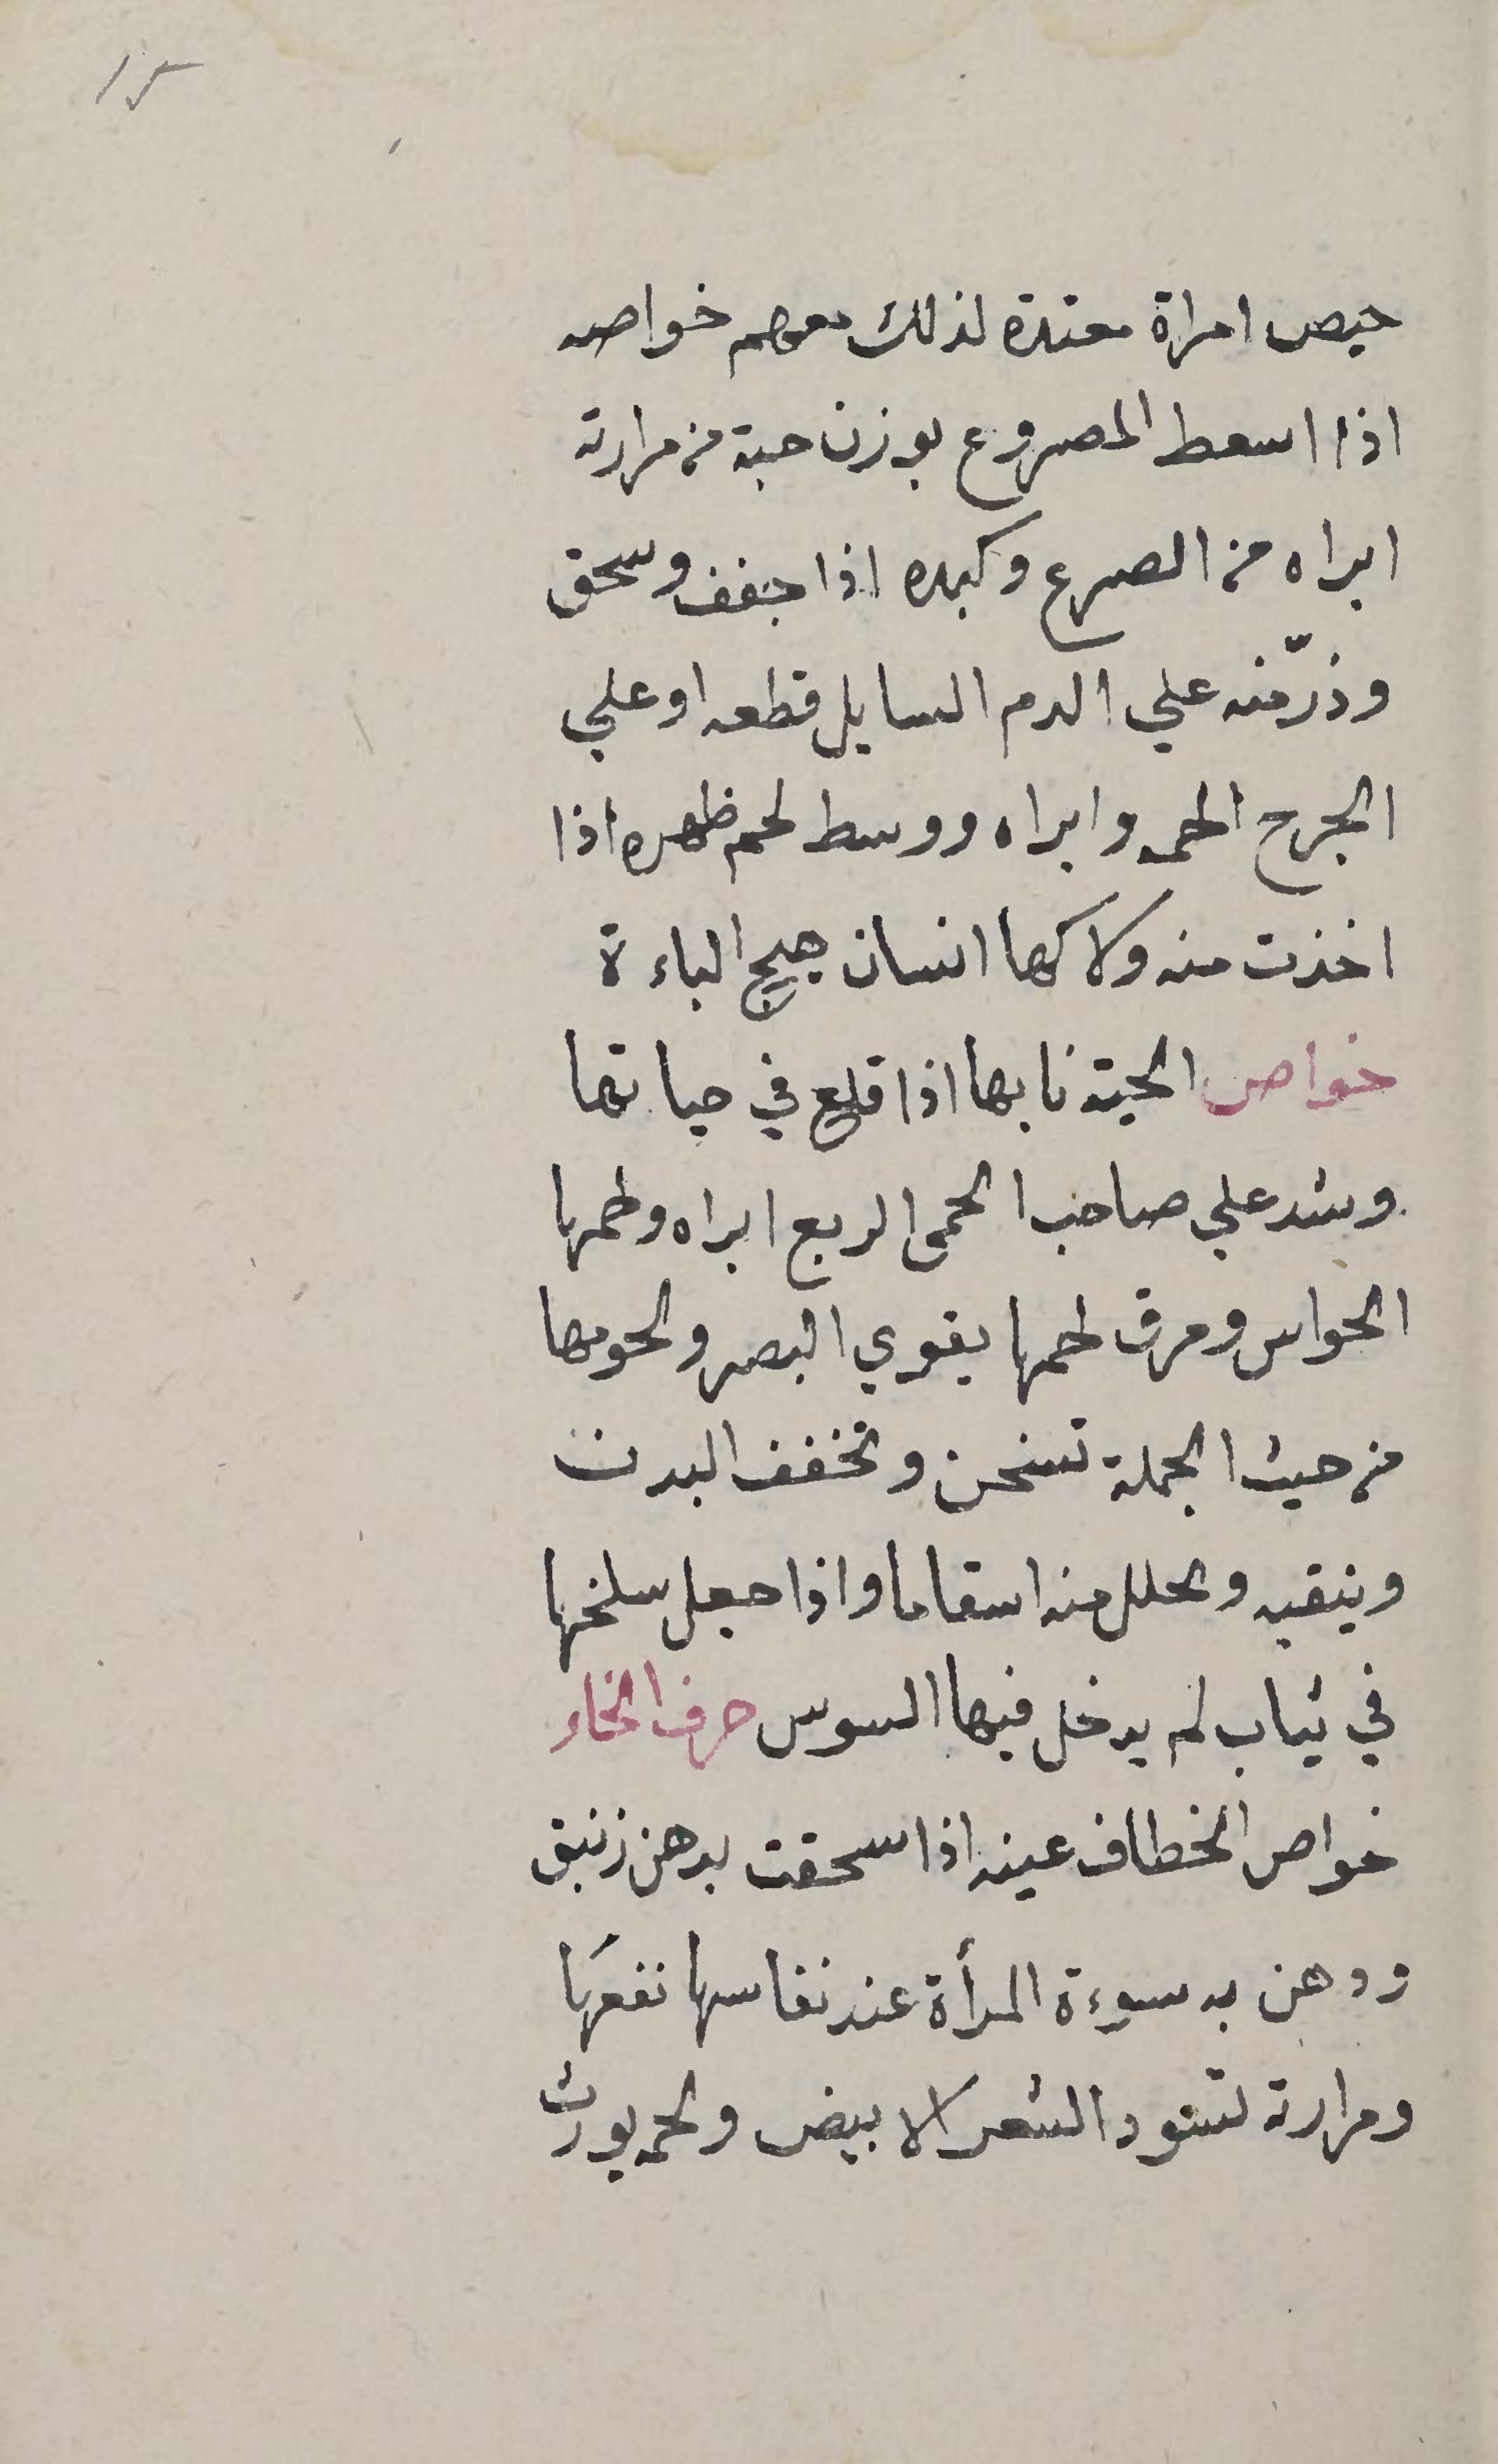 ١٢
حيص امراة معتدة لذلك معهم خواصه
اذا اسعط المصروع بوزن حبة من مرارته
ابراه من الصرع وكبده اذا جفف وسحق
وذرّ منه علي الدم السايل قطعه او علي
الجرح الحمه وابراه ووسط لحم ظهره اذا
اخذت منه ولاكها انسان هيج الباءة
خواص الحية نابها اذا قلع في حياتها
وشد علي صاحب الحمى الربع ابراه ولحمها
الحواس ومرق لحمها يقوي البصر ولحومها
من حيث الجملة تسخن وتخفف البدن
وينقيه ويحلل منه اسقاما واذا جعل سلخها
في ثياب لم يدخل فيها السوس حرف الخاء
خواص الخطاف عينه اذا سحقت بدهن زنبق
ودهن به سوءة المرأة عند نفاسها نفعها
ومرارته تسود الشعر الابيض ولحمه يورث